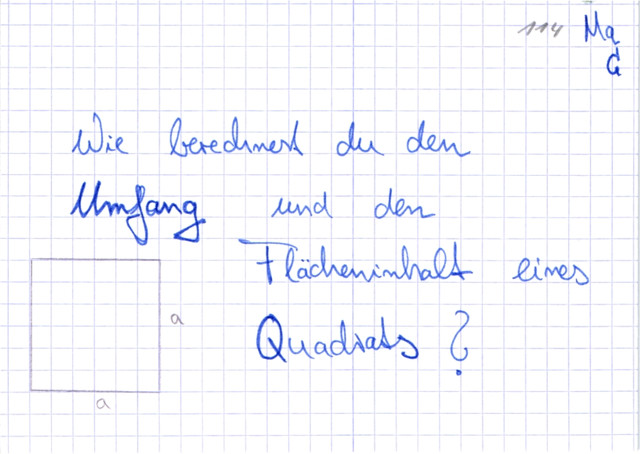 114 Ma
G
Wie berechnest du den
Umfang und den
Flächeninhalt eines
Quadrats?
a
a